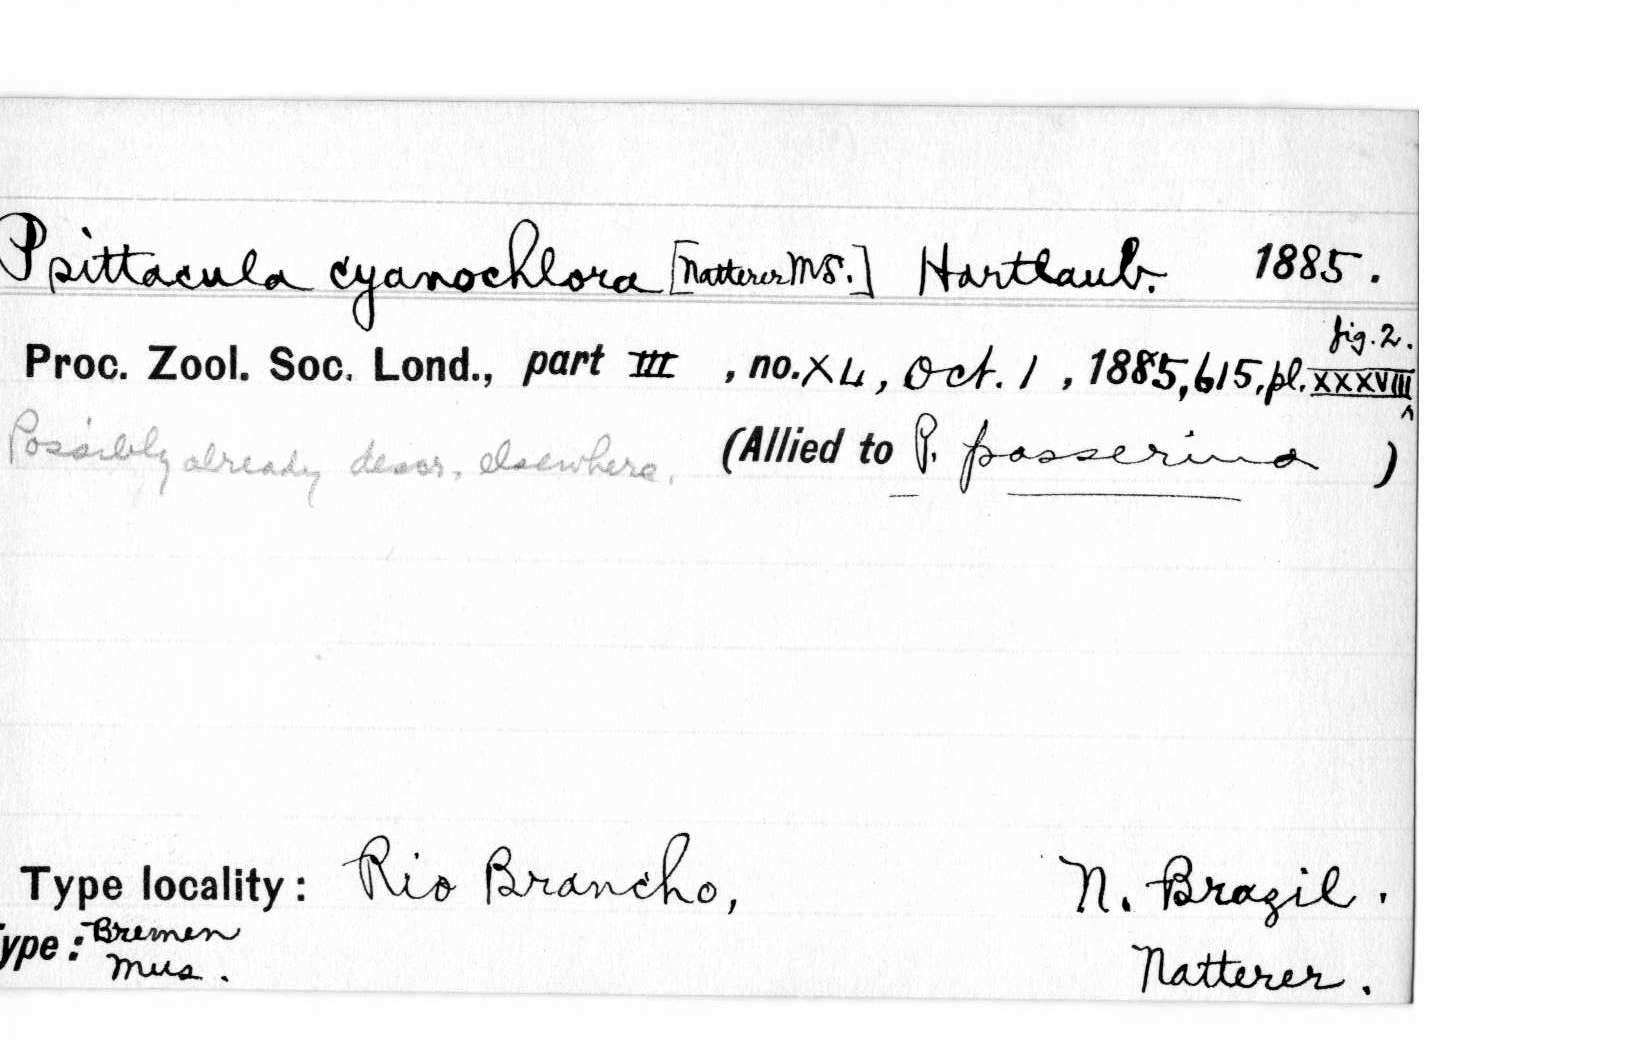 Psittacula cyanochlora [Natterer MS.] Hartlaub. 1885.
fig. 2.
Proc. Zool. Soc. Lond., part III , no. XL, Oct. 1 , 1885, 615, pl. XXXVIII ^
Possibly already descr. elsewhere. (Allied to P. passerina )
Type locality: Rio Brancho, N. Brazil.
ype: Bremen
Mus. Natterer.